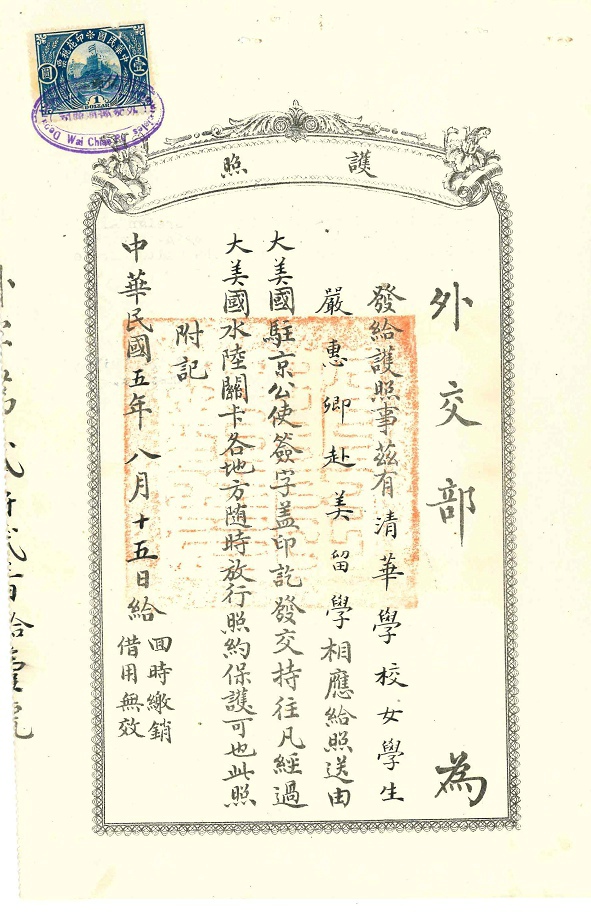 護照
外交部 為
發給護照事茲有清華學校女學生
嚴惠卿赴美留學相應給照送由
大美國駐京公使簽字盖印訖發交持往凡經過
大美國水陸關卡各地方随時放行照約保護可也此照
附記
中華民國五年八月十五日給
回時繳銷
借用無效
中華民國印花稅票
壹
圓
1
DOLLAR
Wai Chiao Pu